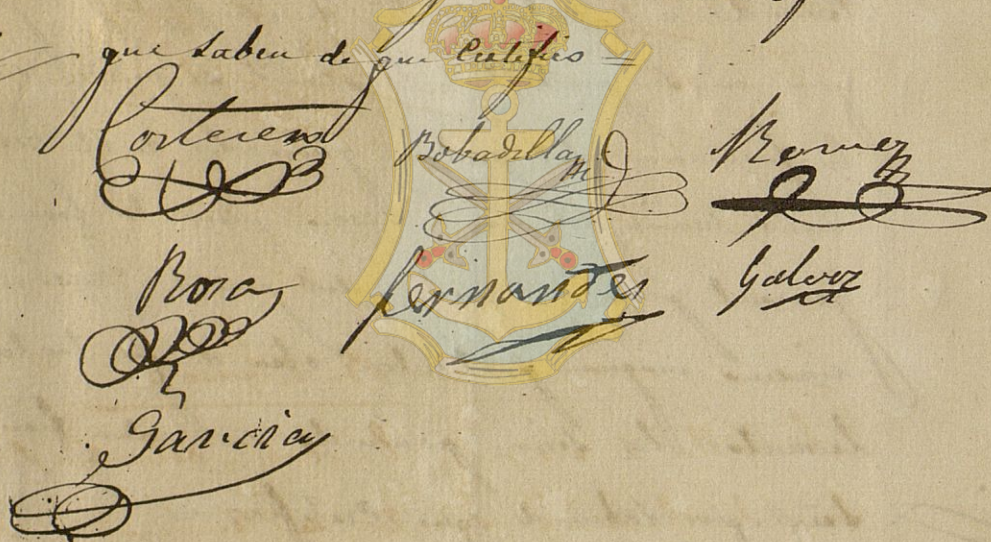 que saben de que Certifico =
Bobadilla
Rosa Fernandez Galvez
Garcia